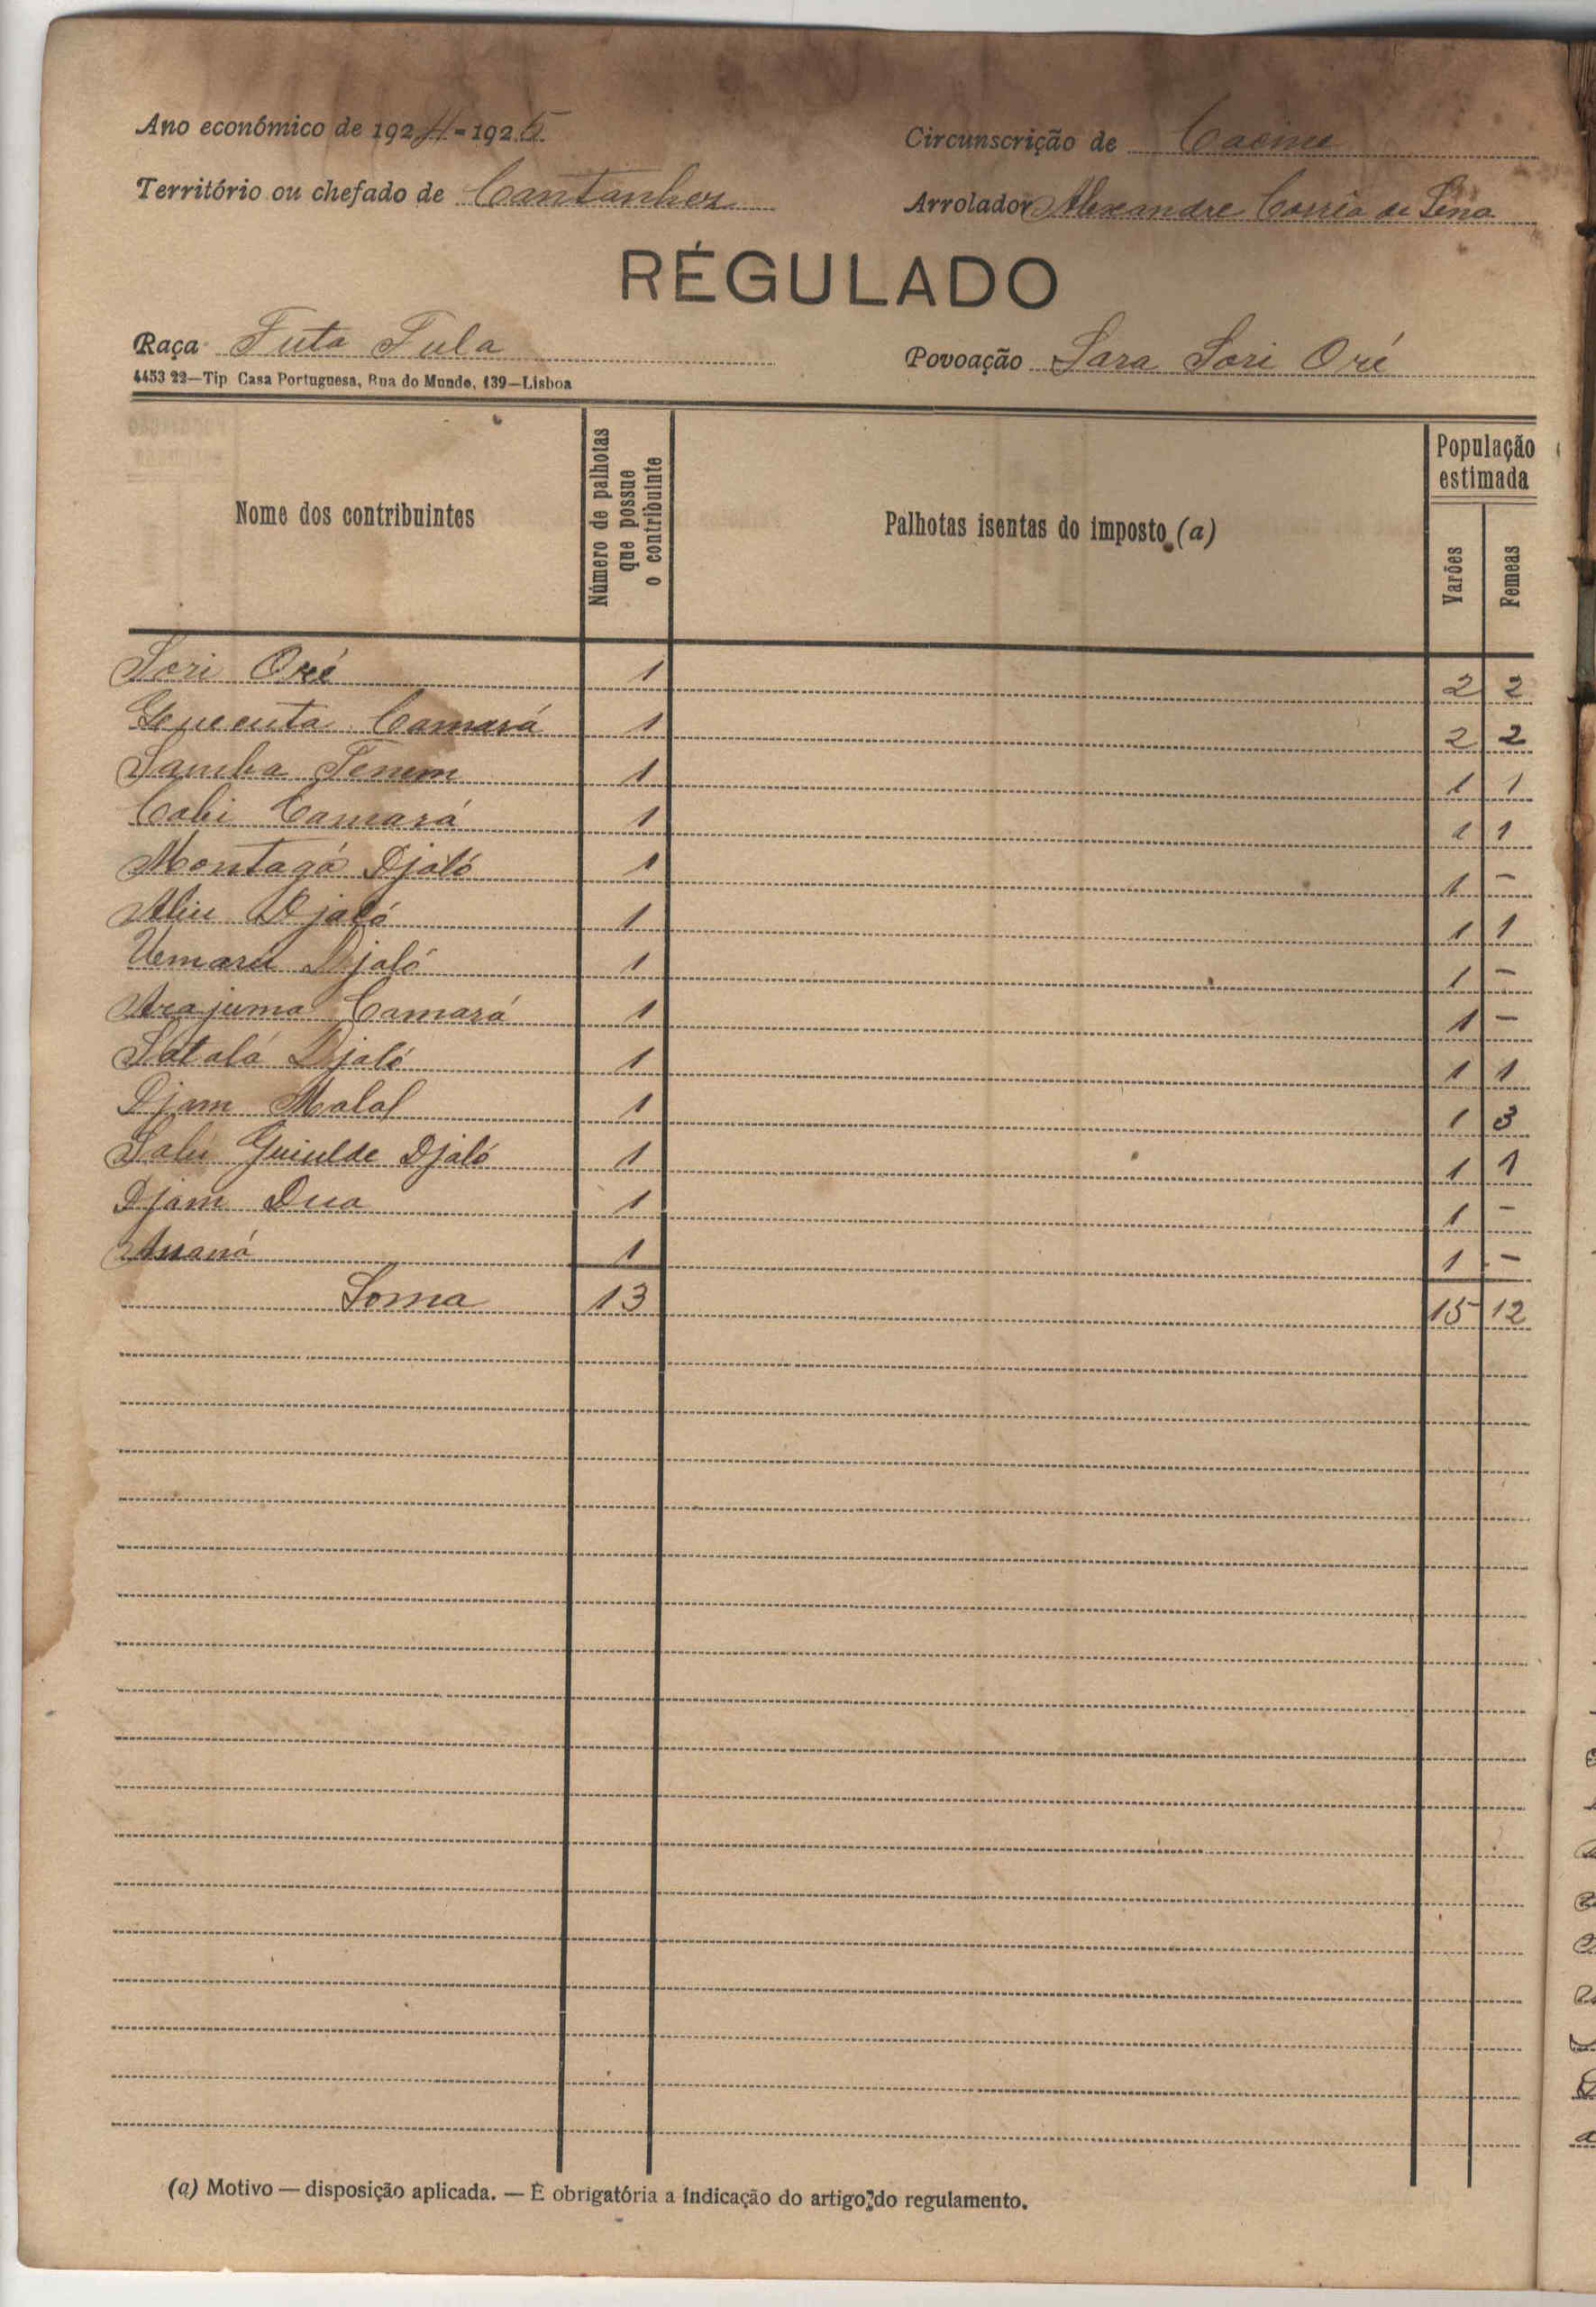 Ano económico de 1924-1925
Circunscrição de Cacine
Território ou chefado de Cantanhez
Arrolador Alexandre Corrêa de Sena
RÉGULADO
Raça Futa Fula
Povoação Sara Sori Oré
4453 22—Tip Casa Portuguesa, Rua do Mundo, 139—Lisboa
Nome dos contribuintes
Número de palhotas que possue o contribuinte
Palhotas isentas do imposto (a)
População estimada
Varões
Femeas
Sori Oré 1 2 2
Camará 1 2 2
Samba Tenem 1 1 1
Cabi Camará 1 1 1
Montagá Djaló 1 1 -
Aliu Djaló 1 1 1
Umaru Djaló 1 1 -
Arajuma Camará 1 1 -
Sataló Djaló 1 1 1
Djam Malal 1 1 3
Salu Guiulde Djaló 1 1 1
Djam Dua 1 1 -
1 1 -
Soma 13 15 12
(a) Motivo — disposição aplicada. — É obrigatória a indicação do artigo do regulamento.